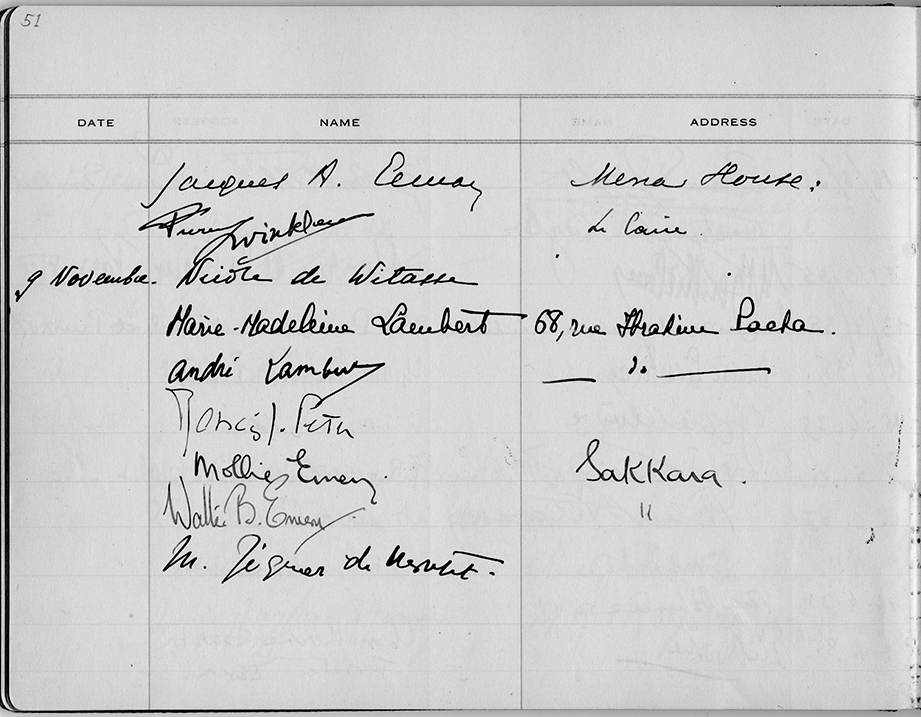 51
DATE NAME ADDRESS
Jacques A. Mena House.
Le Caire
9 Novembre. Nicole de Witasse
Marie-Madeleine Lambert 68, rue Ibrahim Pacha.
André Lambert do
J.
Mollie Emery. Sakkara.
Walter B. Emery. "
M. de